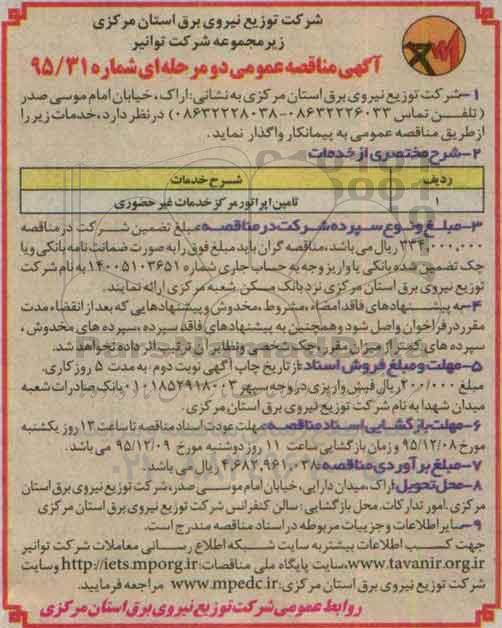 شرکت توزیع نیروی برق استان مرکزی
زیرمجموعه شرکت توانیر
آگهی مناقصه عمومی دو مرحله ای شماره ۹۵/۳۱
۱-شرکت توزیع نیروی برق استان مرکزی به نشانی: اراک، خیابان امام موسی صدر
(تلفن تماس ۰۸۶۳۲۲۲۶۰۳۳-۰۸۶۳۲۲۲۸۰۳۸) درنظر دارد، خدمات زیر را
ازطریق مناقصه عمومی به پیمانکار واگذار نماید.
۲-شرح مختصری از خدمات
ردیف شرح خدمات
۱ تامین اپراتور مرکز خدمات غیر حضوری
۳-مبلغ ونوع سپرده شرکت در مناقصه: مبلغ تضمین شرکت در مناقصه
۲۳۴,۰۰۰,۰۰۰ ریال می باشد، مناقصه گران باید مبلغ فوق را به صورت ضمانت نامه بانکی ویا
چک تضمین شده بانکی یا واریز وجه به حساب جاری شماره ۱۴۰۰۵۱۰۳۶۵۱ به نام شرکت
توزیع نیروی برق استان مرکزی نزد بانک مسکن شعبه مرکزی ارائه نمایند.
۴-به پیشنهادهای فاقد امضاء، مشروط، مخدوش و پیشنهادهایی که بعد از انقضاء مدت
مقرر در فراخوان واصل شود و همچنین به پیشنهادهای فاقد سپرده، سپرده های مخدوش،
سپرده های کمتر از میزان مقرر، چک شخصی ونظایر آن ترتیب اثر داده نخواهد شد.
۵-مهلت ومبلغ فروش اسناد: از تاریخ چاپ آگهی نوبت دوم به مدت ۵ روز کاری.
مبلغ ۲۰۰/۰۰۰ ریال فیش واریزی در وجه سپهر ۰۱۰۱۸۵۲۹۱۸۰۰۳ بانک صادرات شعبه
میدان شهدا به نام شرکت توزیع نیروی برق استان مرکزی.
۶-مهلت بازگشایی اسناد مناقصه: مهلت عودت اسناد مناقصه تا ساعت ۱۳ روز یکشنبه
مورخ ۹۵/۱۲/۰۸ و زمان بازگشایی ساعت ۱۱ روز دوشنبه مورخ ۹۵/۱۲/۰۹ می باشد.
۷-مبلغ برآوردی مناقصه: ۴,۶۸۲,۹۶۱,۰۳۸ ریال می باشد.
۸-محل تحویل: اراک، میدان دارایی، خیابان امام موسی صدر، شرکت توزیع نیروی برق استان
مرکزی. امور تدارکات. محل بازگشایی: سالن کنفرانس شرکت توزیع نیروی برق استان مرکزی
۹-سایر اطلاعات و جزییات مربوطه در اسناد مناقصه مندرج است.
جهت کسب اطلاعات بیشتر به سایت شبکه اطلاع رسانی معاملات شرکت توانیر
www.tavanir.org.ir، سایت پایگاه ملی مناقصات: http://iets.mporg.ir وسایت
شرکت توزیع نیروی برق استان مرکزی: www.mpedc.ir مراجعه فرمایید.
روابط عمومی شرکت توزیع نیروی برق استان مرکزی